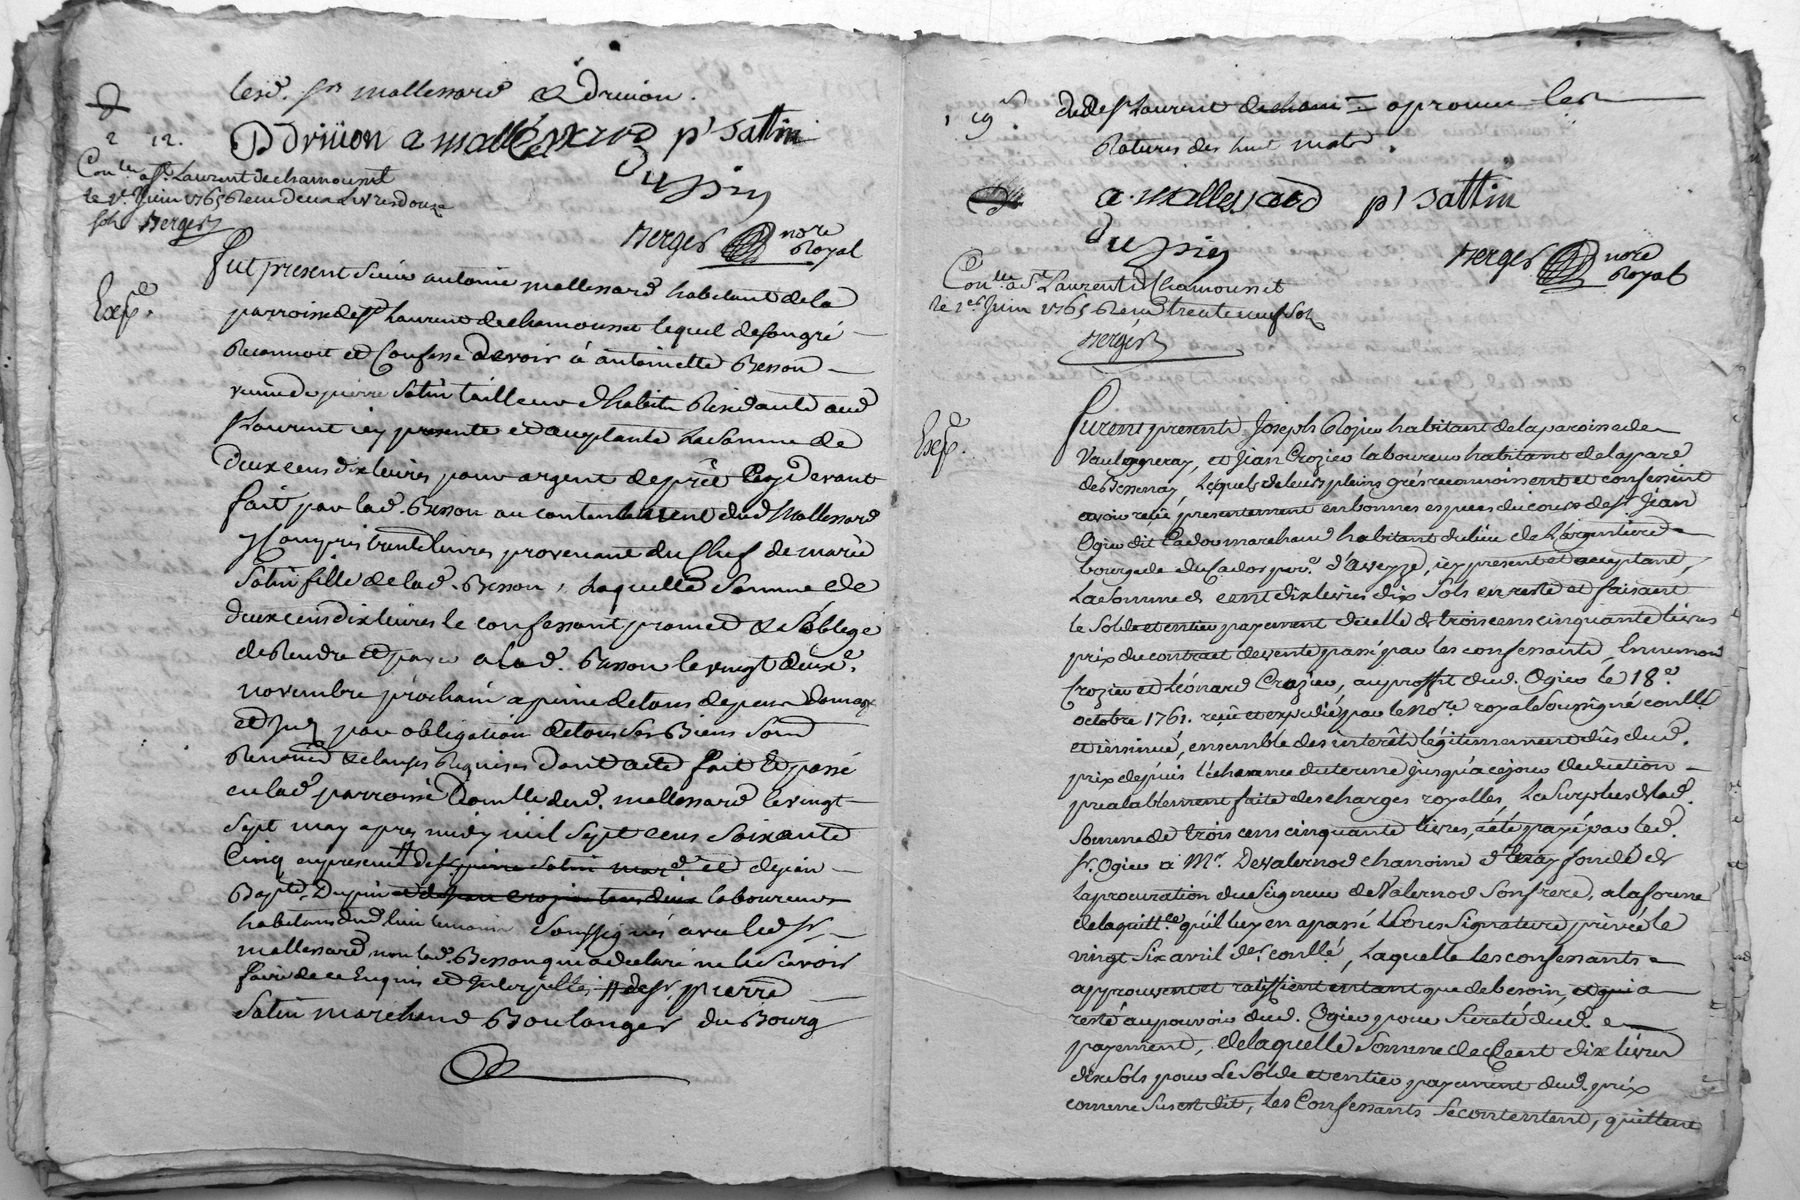 lesd. Srs mallessard & Driuon.
D driüon a mallessard p! Sattin
Dupin
Berger nore
Royal
2 12.
Conlle a St Laurent de chamousset
le 1er Juin 1765 Reçu deux livres douze
sols Berger
Exp.
fut present Sieur antoine mallessard habitant de la
parroisse de St Laurent de chamousset lequel de son gré
Reconnoit et Confesse devoir à antoinette Besson
veuve de pierre Satin tailleur d'habits Residante aud
St Laurent icy presente et acceptante La Somme de
Deux cens dix livres pour argent de prêt Cy devant
fait par lad. Besson au contentement dud Mallessard
y Compris trente livres provenant du Chef de marie
Satin fille de lad. Besson, Laquelle Somme de
deux cens dix livres le confessant promet & S'oblige
de Rendre et payer a lad. Besson le vingt deuxe.
novembre prochain a peine de tous depens domag
et Int par obligation de tous ses Biens Soum
Renond & clauses Requises Dont acte fait Et passé
en lad. parroisse Domlle dud. mallessard le vingt
sept may apres midy mil Sept cens Soixante
Cinq en presence de Sr pierre Satin mard. et de jean
Bapte. Dupin et de Jean crozier tous deux laboureurs
habitans dud. lieu temoins Soussignés avec led Sr
mallessard, non lad. Besson qui a declaré ne le Scavoir
faire de ce Enquis et Interpellés, # de Sr. pierre
Satin marchand Boulanger du Bourg
19 dud St Laurent de cham = aprouvé les
Ratures des huit mots.
a. mallessard p! Sattin
Dupin
Berger nore
Royal
Conlle a St Laurent d Chamousset
le 1er Juin 1765 Reçu trente neuf Sols
Berger
Exp.
Furent presents Joseph Rojeu habitant de la paroisse de
Vaulogneray, et Jean Crozier laboureur habitant de la pare
de Bessenay, Lesquels de leurs pleins grés reconnoissent et confessent
avoir reçu presentement en bonnes especes du cours de Sr Jean
Ogier dit Cador marchand habitant du lieu de L'argentiere
bourgade du Cador parr. d'aveyze, icy present et acceptant,
La Somme de cent dix livres dix Sols en reste et faisant
le Solde et entier payement de celle de trois cens cinquante livres
prix du contrat de vente passé par les confessants,
Crozier et Léonard Crozier, au proffit dud. Ogier le 18e.
octobre 1761. reçû et expedié par le Nore. royal Soussigné conllé
et insinué, ensemble des interêts légitimement dûs dud.
prix depuis l'échéance du terme jusqu'a ce jour deduction
prealablement faite des charges royalles, Le Surplus de lad.
Somme de trois cens cinquante livres, a été payé par led.
Sr. Ogier a Mr. De valernod chanoine d fondé de
la procuration du Seigneur de Valernod Son frere, a la forme
de la quittce. qu'il luy en a passé Sous Signature privée le
vingt Six avril der. conllé, Laquelle les confessants
approuvent et ratiffient entant que de besoin, et qui a
resté au pouvoir dud. Ogier pour Sureté dud.
payement, de laquelle Somme de Cent dix livres
dix Sols pour Le Solde et entier payement dud. prix
comme Sus est dit, les Confessants Se contentent, quittent